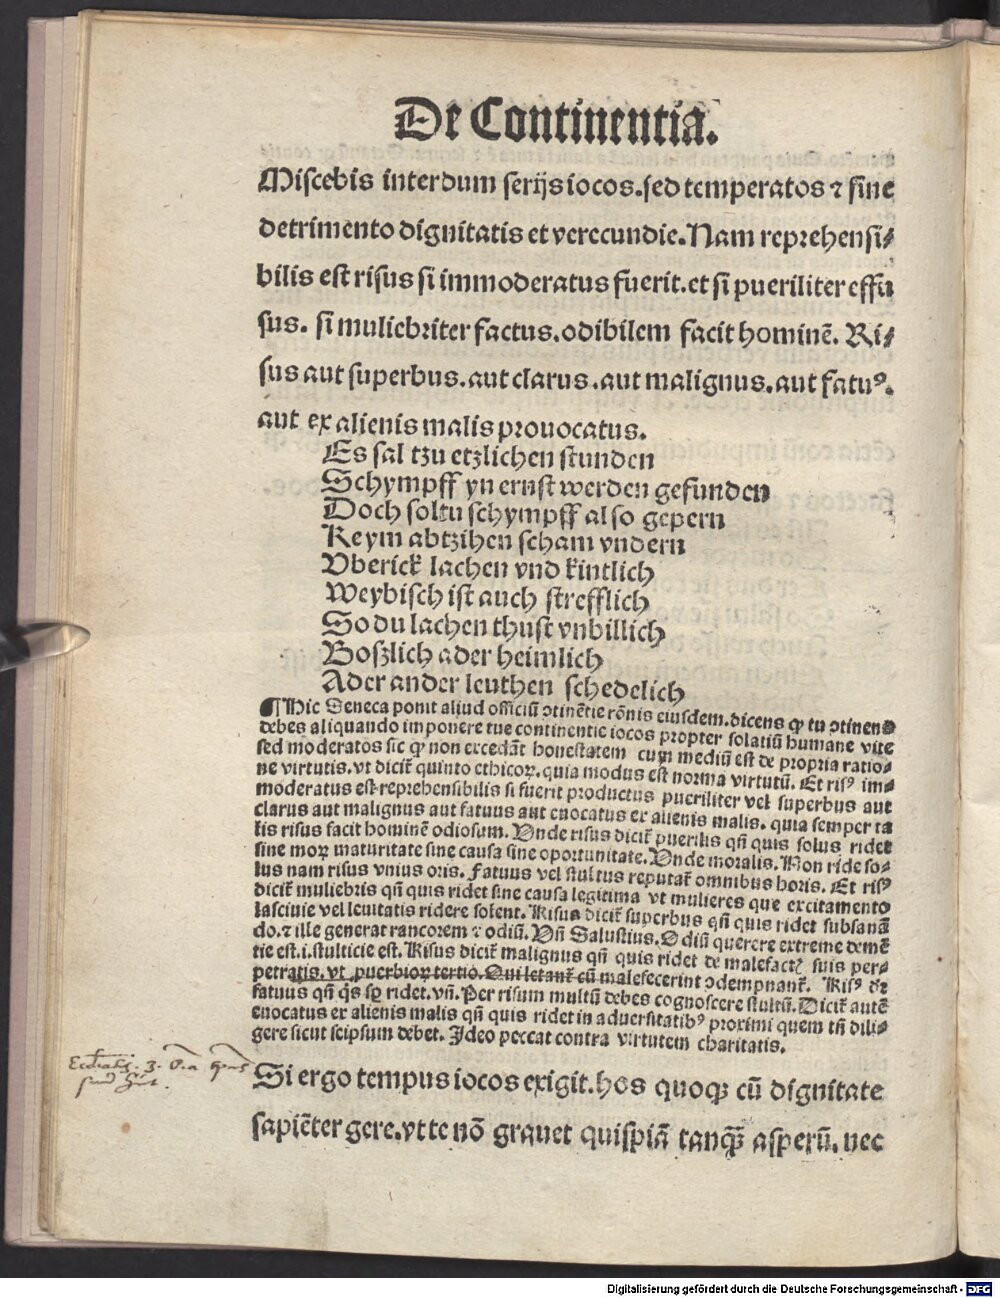 De Continentia.
Miscebis interdum serijs iocos. sed temperatos ⁊ sine
detrimento dignitatis et verecundie. Nam reprehensi⸗
bilis est risus si immoderatus fuerit. et si pueriliter effu
sus. si muliebriter factus. odibilem facit hominē. Ri⸗
sus aut superbus. aut clarus. aut malignus. aut fatuꝰ.
aut ex alienis malis prouocatus.
Es sal tzu etzlichen stunden
Schympff yn ernst werden gefunden
Doch soltu schympff also gepern
Keym abtzihen scham vndern
Vberick lachen vnd kintlich
Weybisch ist auch strefflich
So du lachen thust vnbillich
Boszlich ader heimlich
Ader ander leuthen schedelich
¶ Hic Seneca ponit aliud officiū ↄtinētie rōnis eiusdem. dicens ꝙ tu ↄtinens
debes aliquando imponere tue continentie iocos propter solatiū humane vite
sed moderatos sic ꝙ non excedāt honestatem cum mediū est de propria ratio⸗
ne virtutis. vt dicit̃ quinto ethicoꝝ. quia modus est norma virtutū. Et risꝰ im⸗
moderatus est reprehensibilis si fuerit productus pueriliter vel superbus aut
clarus aut malignus aut fatuus aut euocatus ex alienis malis. quia semper ta
lis risus facit hominē odiosum. Vnde risus dicit̃ puerilis qñ quis solus ridet
sine moꝝ maturitate sine causa sine oportunitate. Vnde moralis. Non ride so⸗
lus nam risus vnius oris. Fatuus vel stultus reputat̃ omnibus horis. Et risꝰ
dicit̃ muliebris qñ quis ridet sine causa legitima vt mulieres que excitamento
lasciuie vel leuitatis ridere solent. Risus dicit̃ superbus qñ quis ridet subsanā
do. ⁊ ille generat rancorem ⁊ odiū. Vñ Salustius. Odiū querere extreme demē
tie est. i. stulticie est. Risus dicit̃ malignus qñ quis ridet de malefactꝭ suis per⸗
petratis. vt puerbioꝝ tertio. Qui letant̃ cū malefecerint ↄdempnant̃. Risꝰ dr̄
fatuus qñ q̇s sꝑ ridet. vñ. Per risum multū debes cognoscere stultū. Dicit̃ autē
euocatus ex alienis malis qñ quis ridet in aduersitatibꝰ proximi quem tñ dili⸗
gere sicut seipsum debet. Ideo peccat contra virtutem charitatis.
Si ergo tempus iocos exigit. hos quoqꝫ cū dignitate
sapiēter gere. vt te nō grauet quispiā tanqꝫ asperū. nec
Digitalisierung gefördert durch die Deutsche Forschungsgemeinschaft - DFG